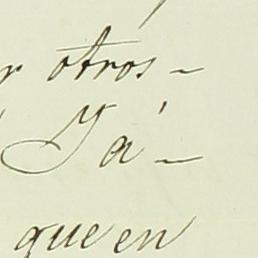 r otros –
Ya –
que en